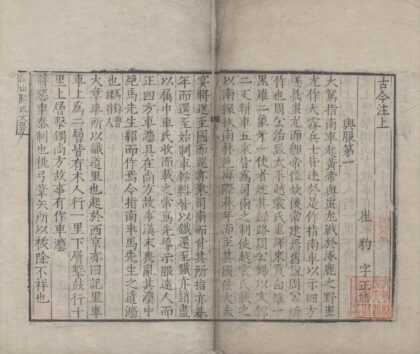 古今注上
崔豹字正熊
輿服第一
大駕指南車起黃帝與蚩尤戰於涿鹿之野蚩
尤作大霧兵士皆迷於是作指南車以示四方
遂擒蚩尤而即帝位故後常建焉舊說周公所
作也周公治致太平越裳氏重譯來貢白雉一
黑雉二象牙一使者迷其歸路周公錫以文錦
二疋軿車五乘皆為司南之制使越裳氏載之
以南緣扶南林邑海際朞年而至其國使大夫
宴將送至國而還亦乘司南而背其所指亦朞
年而還至始制車轄轊皆以鐵還至鐵亦銷盡
以屬巾車氏收而載之常為先導示服遠人而
正四方車灋具在尚方故事漢末喪亂其灋中
絕馬先生紹而作焉今指南車馬先生之遺灋
也
大章車所以識道里也起於西京亦曰記里車
車上為二層皆有木人行一里下層擊鼓行十
里上層擊鐲尚方故事有作車灋
辟惡車秦制也桃弓葦矢所以祓除不祥也